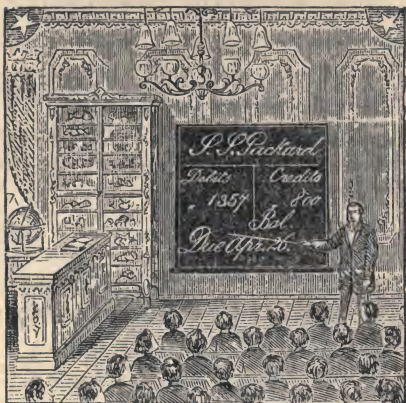 S. S. Packard
Debits Credits
1357 800
Bal.
Due Apr. 26.